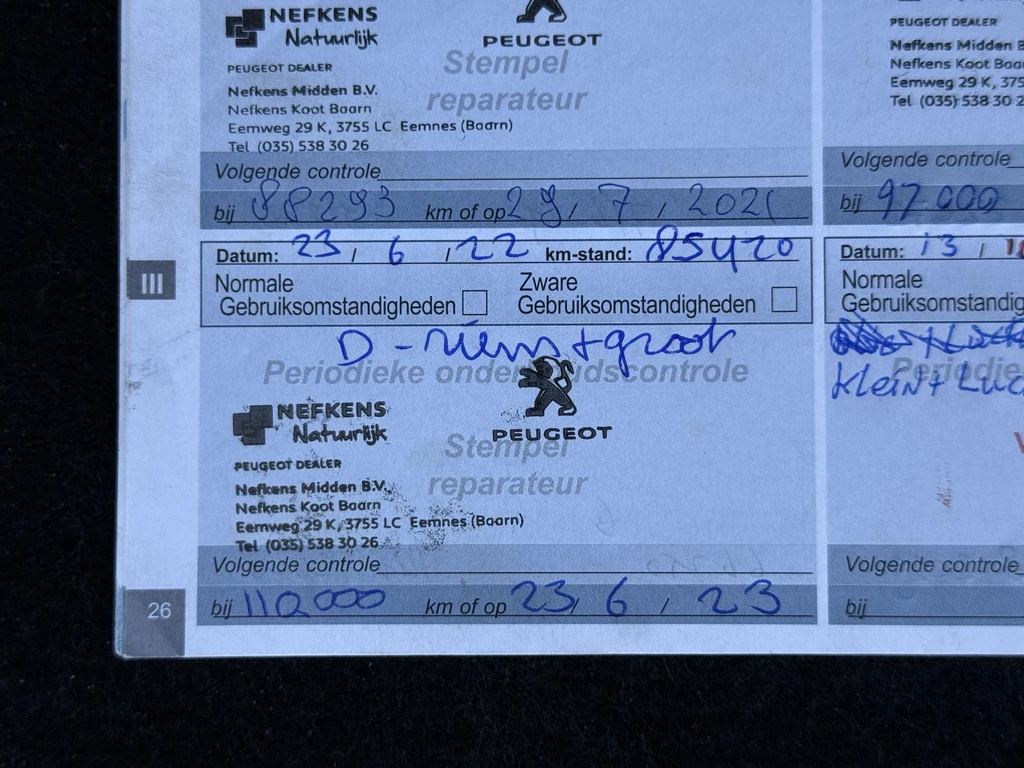 NEFKENS
Natuurlijk
PEUGEOT
PEUGEOT DEALER
Stempel
reparateur
Nefkens Midden B.V.
Nefkens Koot Baarn
Eemweg 29 K, 3755 LC Eemnes (Baarn)
Tel (035) 538 30 26
Volgende controle
bij 88293 km of op 29 / 7 / 2021
PEUGEOT DEALER
Nefkens Midden B
Nefkens Koot Baa
Eemweg 29 K, 375
Tel (035) 538 30 2
Volgende controle
bij 97000
III
Datum: 23 / 6 / 22 km-stand: 85420
Normale Gebruiksomstandigheden
Zware Gebruiksomstandigheden
D-riem + groot
Periodieke onderhoudscontrole
NEFKENS
Natuurlijk
PEUGEOT
PEUGEOT DEALER
Stempel
reparateur
Nefkens Midden B.V.
Nefkens Koot Baarn
Eemweg 29 K, 3755 LC Eemnes (Baarn)
Tel (035) 538 30 26
Volgende controle
bij 110000 km of op 23 / 6 / 23
Datum: 13 / 1
Normale
Gebruiksomstandig
Klein + Luc
Periodie
Volgende controle
bij
26